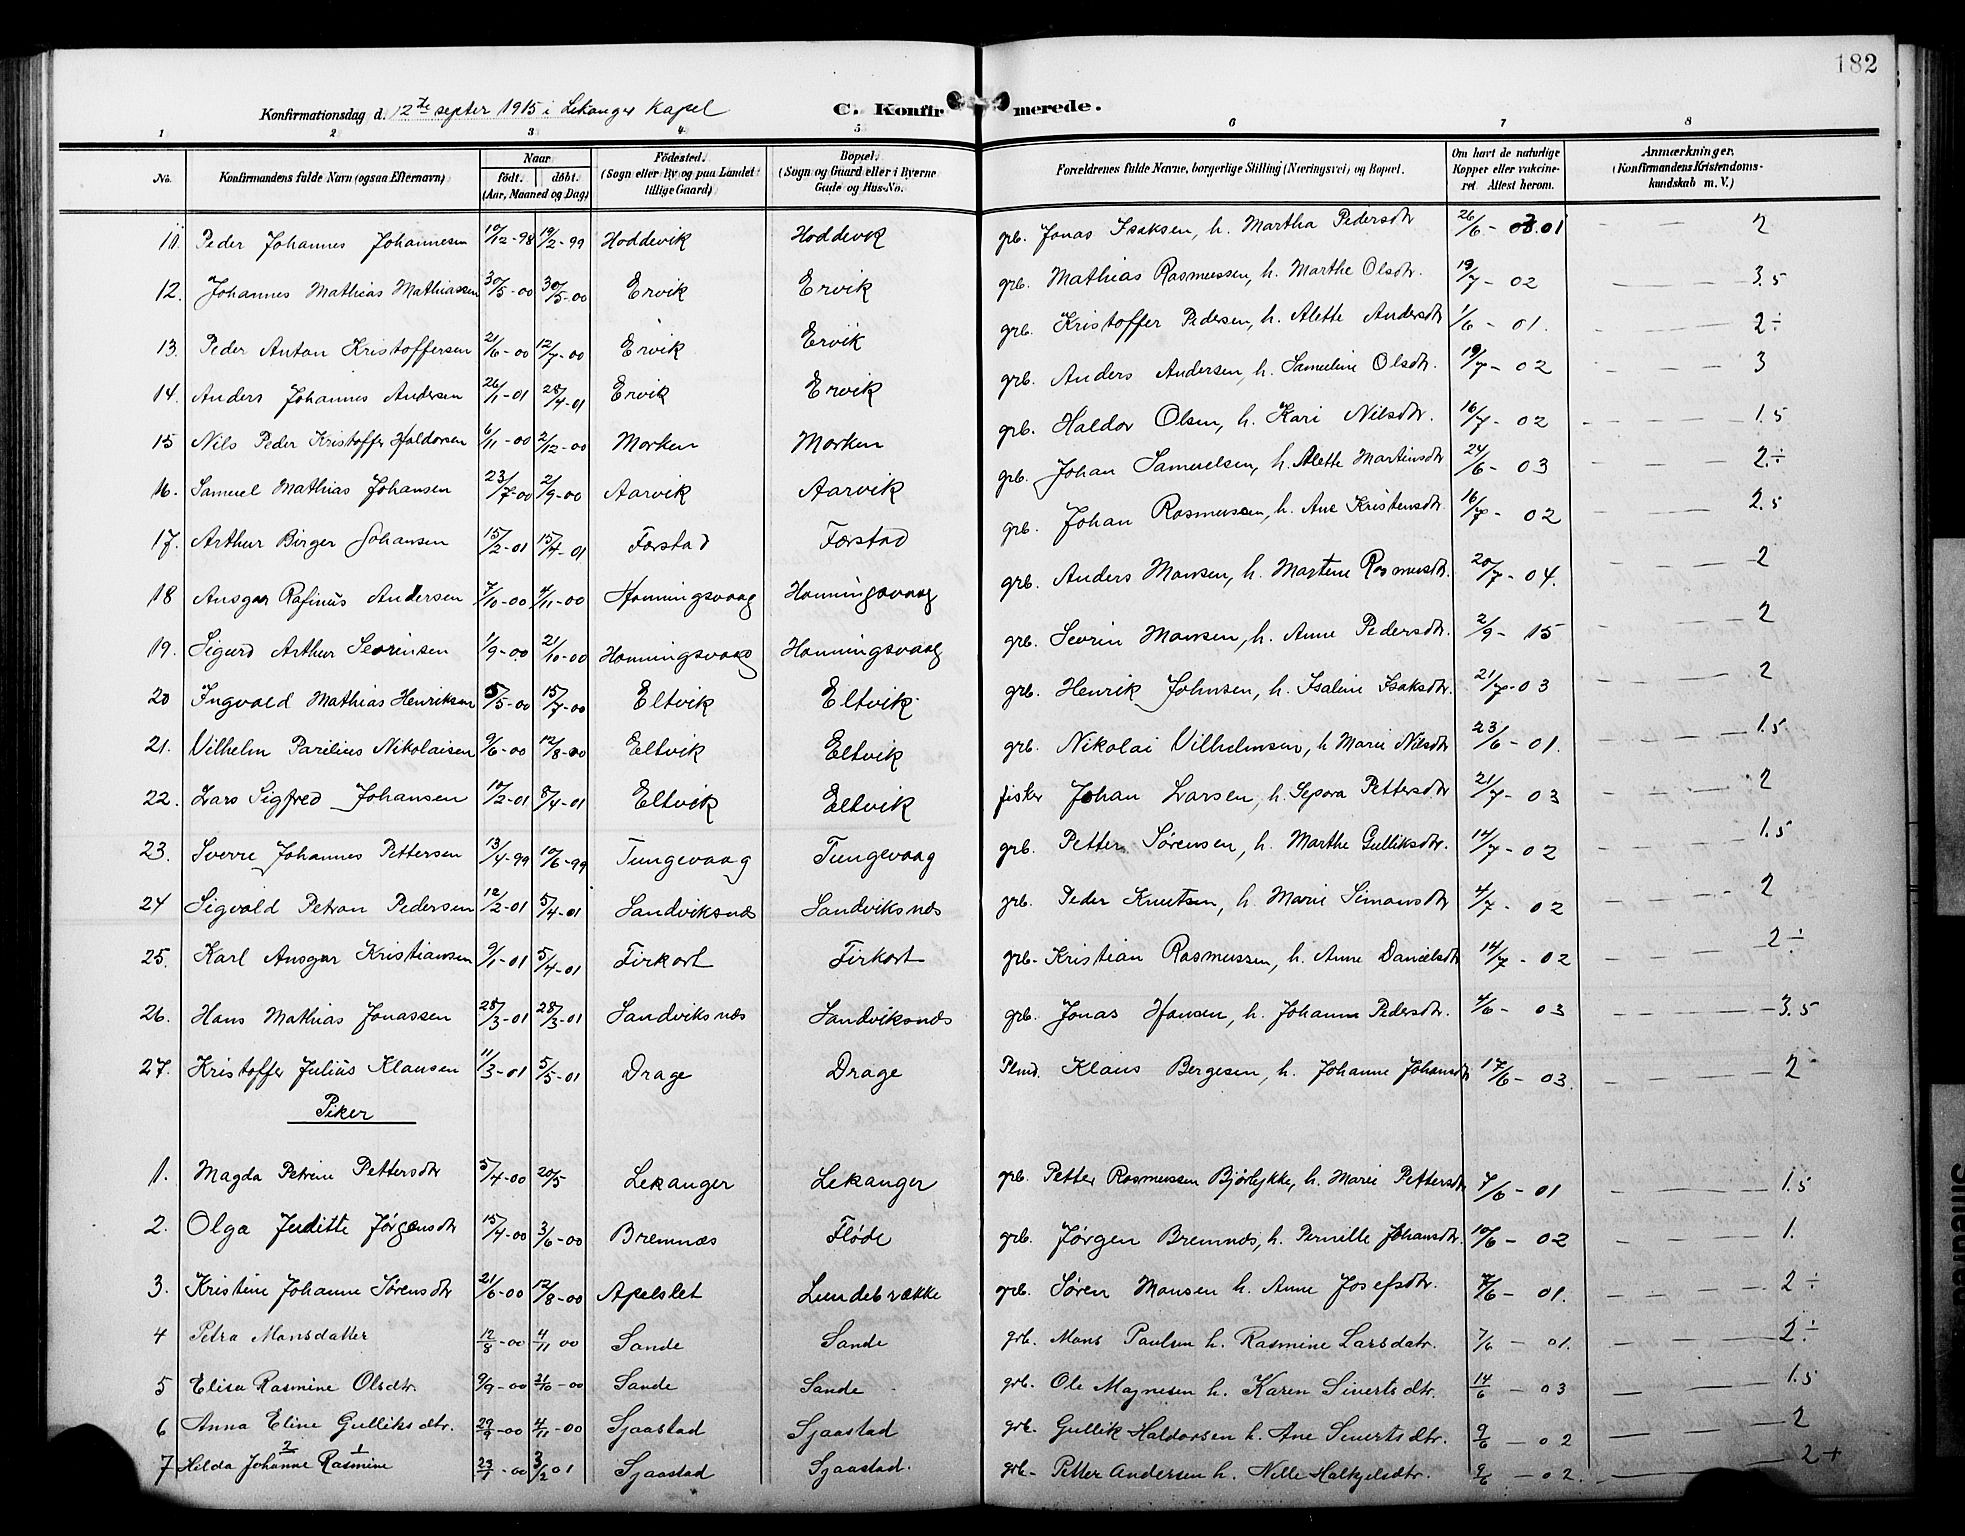 182
Konfirmationsdag d. 12te septer 1915 i Lekanger Kapel C. Konfirmerede.
1 2 3 4 5 6 7 8
No. Konfirmandens fulde Navn (ogsaa Efternavn) Naar født. døbt. (Aar, Maaned og Dag) Fødested. (Sogn eller By og paa Landet tillige Gaard) Bopæl. (Sogn og Gaard eller i Byerne Gade og Hus-No. Forældrenes fulde Navne, borgerlige Stilling (Næringsvei) og Bopæl. Om havt de naturlige Kopper eller vakcineret. Attest herom. Anmærkninger. (Konfirmandens Kristendomskundskab m. V.)
11. Peder Johannes Johannesen 10/12-98 19/2-99 Hoddevik Hoddevik grb. Jonas Isaksen, h. Martha Pedersdtr 26/6 - 01 - - - 2
12. Johannes Mathias Mathiassen 30/5-00 30/5-00 Ervik Ervik grb. Mathias Rasmussen, h. Marthe Olsdtr. 19/7 - 02 - - - 3.5
13. Peder Anton Kristoffersen 21/6-00 12/7-00 Ervik Ervik grb. Kristoffer Pedersen, h. Alette Andersdtr 1/6 - 01. - - - 2÷
14. Anders Johannes Andersen 26/1-01 28/4-01 Ervik Ervik grb. Anders Andersen, h. Samueline Olsdtr. 19/7 - 02 - - - 3
15 Nils Peder Kristoffer Haldorsen 6/11-00 2/12-00 Morken Morken grb. Haldor Olsen, h. Kari Nilsdtr. 16/7 - 02 - - - 1.5
16. Samuel Mathias Johansen 23/7-00 2/9-00 Aarvik Aarvik grb. Johan Samuelsen, h. Alette Martinsdtr 24/6 - 03 - - - 2.÷
17. Arthur Birger Johansen 15/2-01 15/4-01 Forstad Forstad grb. Johan Rasmussen, h. Ane Kristensdtr. 16/7 - 02 - - - 2.5
18 Ansgar Rafinus Andersen 7/10-00 4/11-00 Honningsvaag Honningsvaag grb. Anders Monsen, h. Martine Rasmusdtr. 20/7 - 04. - - - 2
19. Sigurd Arthur Sevrinsen 1/9-00 21/10-00 Honningsvaag Honningsvaag grb. Sevrin Monsen, h. Anne Pedersdtr. 2/9 - 15 - - - 2
20 Ingvald Mathias Henriksen 5/5-00 15/7-00 Eltvik Eltvik grb. Henrik Johnsen, h. Isaline Isaksdtr. 21/7-03 - - - 2
21. Vilhelm Parelius Nikolaisen 9/6-00 12/8-00 Eltvik Eltvik grb. Nikolai Vilhelmsen, h Marie Nilsdtr 23/6 - 01. - - - 1.5
22. Lars Sigfred Johansen 10/2-01 8/4-01 Eltvik Eltvik fisker Johan Larsen, h. Sepora Pettersdtr 21/7 - 03 - - - 2
23. Sverre Johannes Pettersen 13/4-99 10/6-99 Tungevaag Tungevaag grb. Petter Sørensen, h. Marthe Gulliksdtr. 14/7 - 02 - - - 1.5
24 Sigvald Petran Pedersen 12/2-01 5/4-01 Sandviksnæs Sandviksnæs grb. Peder Knutsen, h. Marie Simonsdtr 4/7 - 02 - - - 2
25. Karl Ansgar Kristiansen 9/1-01 5/4-01 Firkort Firkort grb. Kristian Rasmussen, h. Anne Danielsdtr 14/7 - 02 - - - 2÷
26. Hans Mathias Jonassen 28/3-01 28/3-01 Sandviksnæs Sandviksnæs grb. Jonas Hansen, h. Johanne Pedersdtr. 4/6 - 03 - - - 3.5
27. Kristoffer Julius Klausen 11/3-01 5/5-01 Drage Drage Plmd. Klaus Bergesen, h. Johanne Johansdtr 17/6 - 03. - - - 2
Piker
1. Magda Petrine Pettersdtr 5/4-00 20/5 Lekanger Lekanger grb. Petter Rasmussen Bjørlykke, h. Marie Pettersdtr 7/6 - 01 - - - 1.5
2. Olga Juditte Jørgensdtr 15/4-00 3/6-00 Bremnæs Fløde grb. Jørgen Bremnæs, h. Pernille Johansdtr. 10/6 - 02 - - - 1.
3. Kristine Johanne Sørensdtr 21/6-00 12/8-00 Apelslet Lundebrække grb. Søren Monsen h. Anne Josefsdtr. 7/6 - 01. - - - 2÷
4 Petra Monsdatter 12/8-00 4/11 00 Sande Sande grb. Mons Paulsen h. Rasmine Larsdatr. 7/6 - 01. - - - 2÷
5 Elisa Rasmine Olsdtr. 9/9-00 21/10-00 Sande Sande grb. Ole Magnesen h. Karen Sivertsdtr. 14/6 - 03 - - - 1.5
6 Anna Eline Gulliksdtr. 29/9-00 4/11-00 Sjaastad Sjaastad grb. Gullik Haldorsen h. Ane Sivertsdtr. 9/6 - 02 - - - 2
7 Hilda Johanne Rasmine 23/7-00 3/2 01 Sjaastad Sjaastad. grb. Petter Andersen h. Nille Halkjelsdtr. 9/6 - 02. - - - 2+